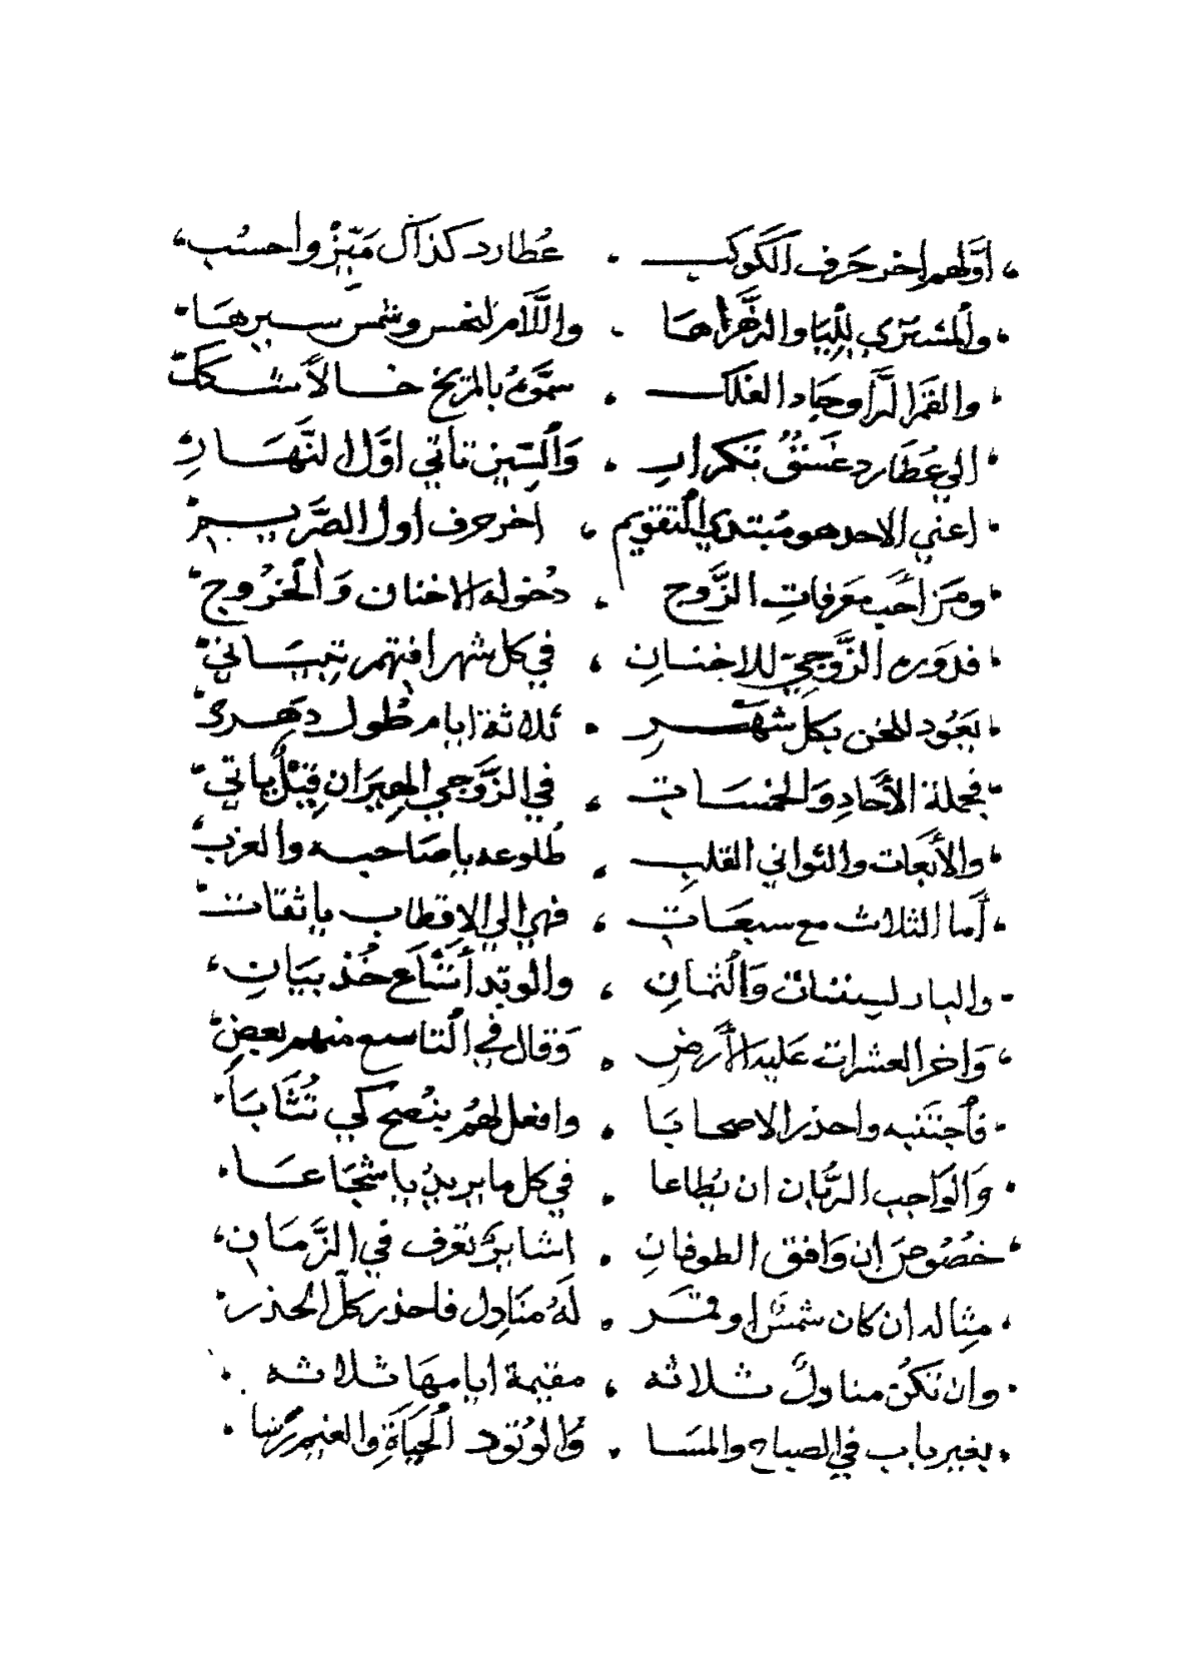 اوَّلهم اخر حَرف الكَوكب عُطارد كذاك مَيّز واحسُب
والمشترى لليَا والزُّهَراهَا واللَّام لنحس وشمس سيرهَا
والقمر الرَّا وجَا دا الفلك سمّوهُ بالمريخ خالاً شكك
الي عُطَارد غسَقٌ بتكرارِ وَالسّين تاتي اوَّل النَّهَارِ
اعني الاحد هو مُبتدي التقويم اخر حرف اول الصَّريم
ومَن احَب معرفاتِ الزَّوج دُخوله الاخنان وَالخرُوج
فدَوره الزَّوجيّ للاخنانِ في كل شهر افتهم تبيَاني
يعَود للخن بكل شَهَرِ ثلاثة ايام طُول دهَر
فجملة الأحَادِ وَالخمسَات في الزَّوجي الجيرَان قبلُ ياتي
والأربَعات والثواني القلبِ طُلوعه ياصَاحبه والغرب
أما الثلاث مع سبعَاتِ فهي الي الاقطاب ياثقات
والبار لستات وَالثمانِ والوتد أتسَاع خُذ بيَانِ
وَاخر العشرات عَليه الأرضِ وَقال في التاسع منهم بعضِ
فاجتنبه واحذر الاصحابَا وافعل لهُم ينُصح كي تُثَابَا
وَالوَاجب الرُّبان ان يُطاعا في كل ما يريدُ يا شجَاعَا
خصُوصَ ان وَافق الطوفانِ اشاير تعرف في الزَّمَانِ
مثاله ان كان شمسًا وقمَر لهُ منَازل فاحذر كلّ الحذر
وان تكُن منازلٌ ثلاثه مقيمة ايامهَا ثلاثه
بغير باب في الصباح والمسَا وَالوُتود الحيَاةَ والغيم رسَا